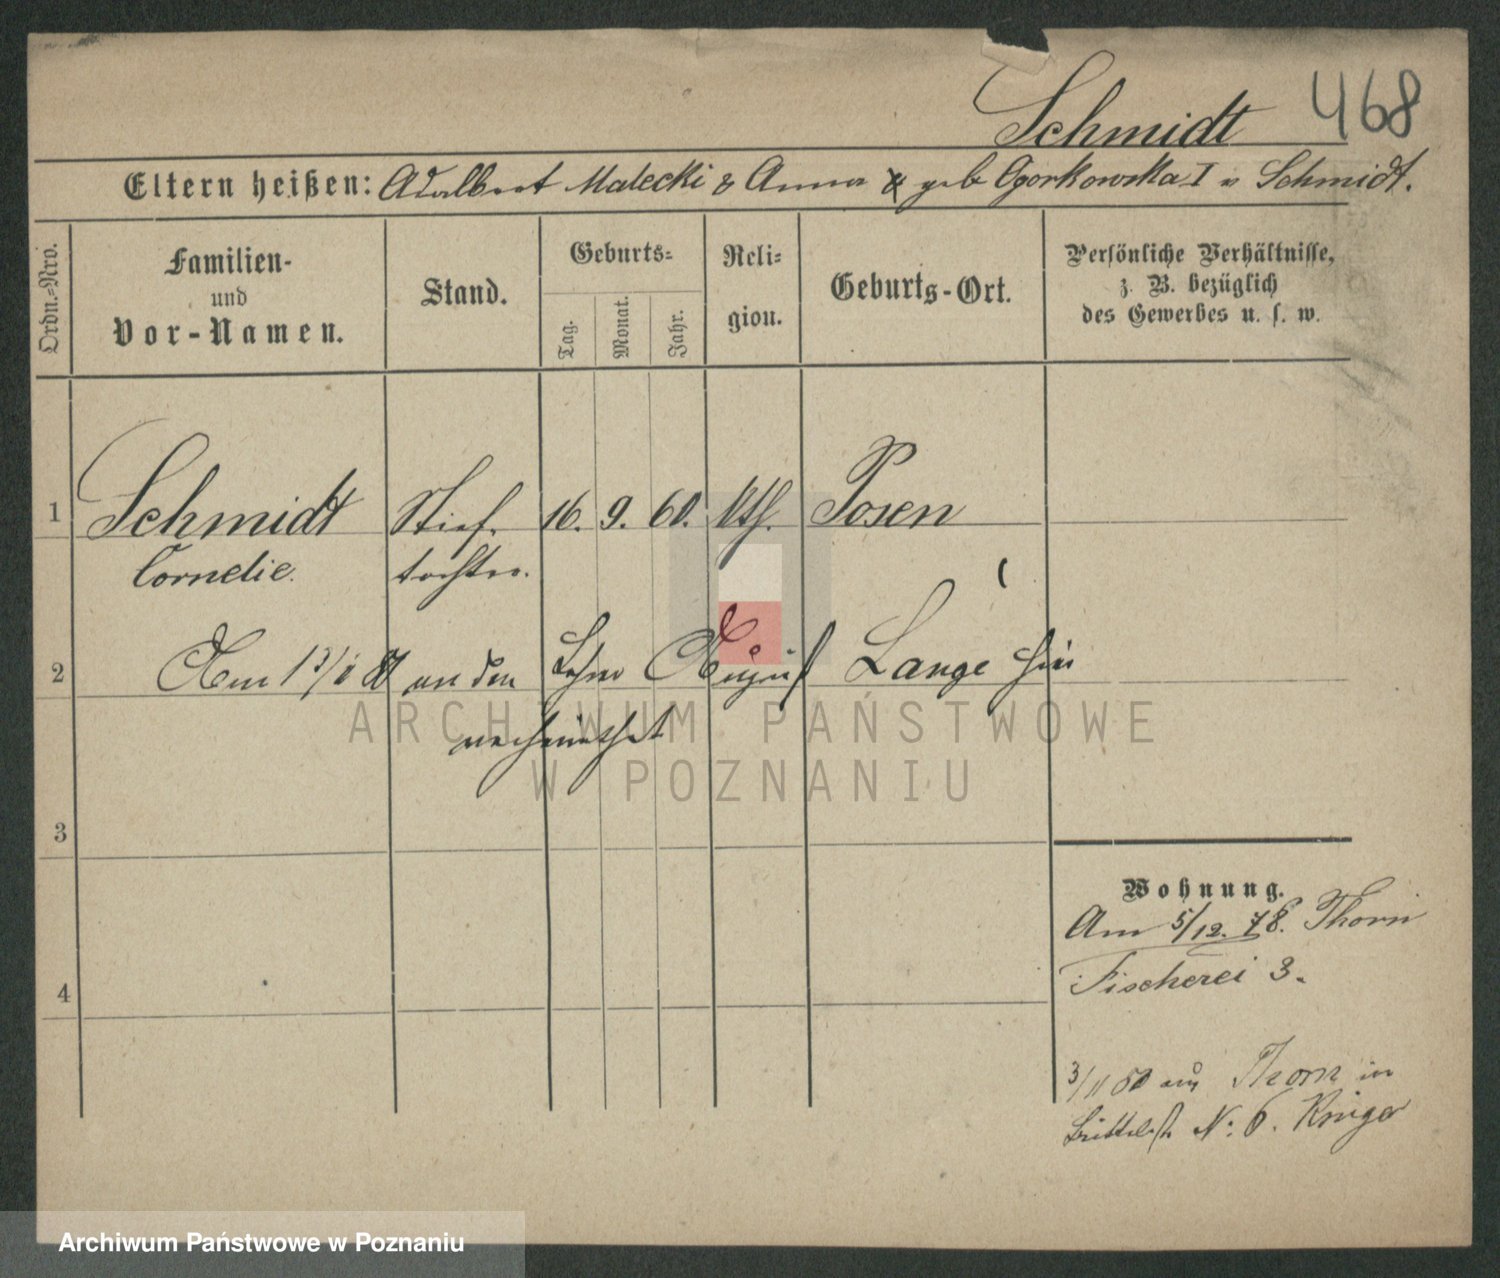 Schmidt 468
Eltern heißen: Adalbert Malecki & Anna geb Gorkowska I v Schmidt.
Ordn.-Nro.
Familien-
und
Vor-Namen.
Stand.
Geburts-
Tag.
Monat.
Jahr.
Reli-
gion.
Geburts-Ort.
Persönliche Verhältnisse,
z. B. bezüglich
des Gewerbes u. s. w.
1 Schmidt Stief- 16. 9. 60. kth. Posen
Cornelie. tochter.
2 Am an den August Lange hier
verheirathet
3
Wohnung.
Am 5/12. 78. Thorn
Fischerei 3.
4
3/11 80 aus Thorn in
Büttelst N: 6. Krüger
ARCHIWUM PAŃSTWOWE
W POZNANIU
Archiwum Państwowe w Poznaniu